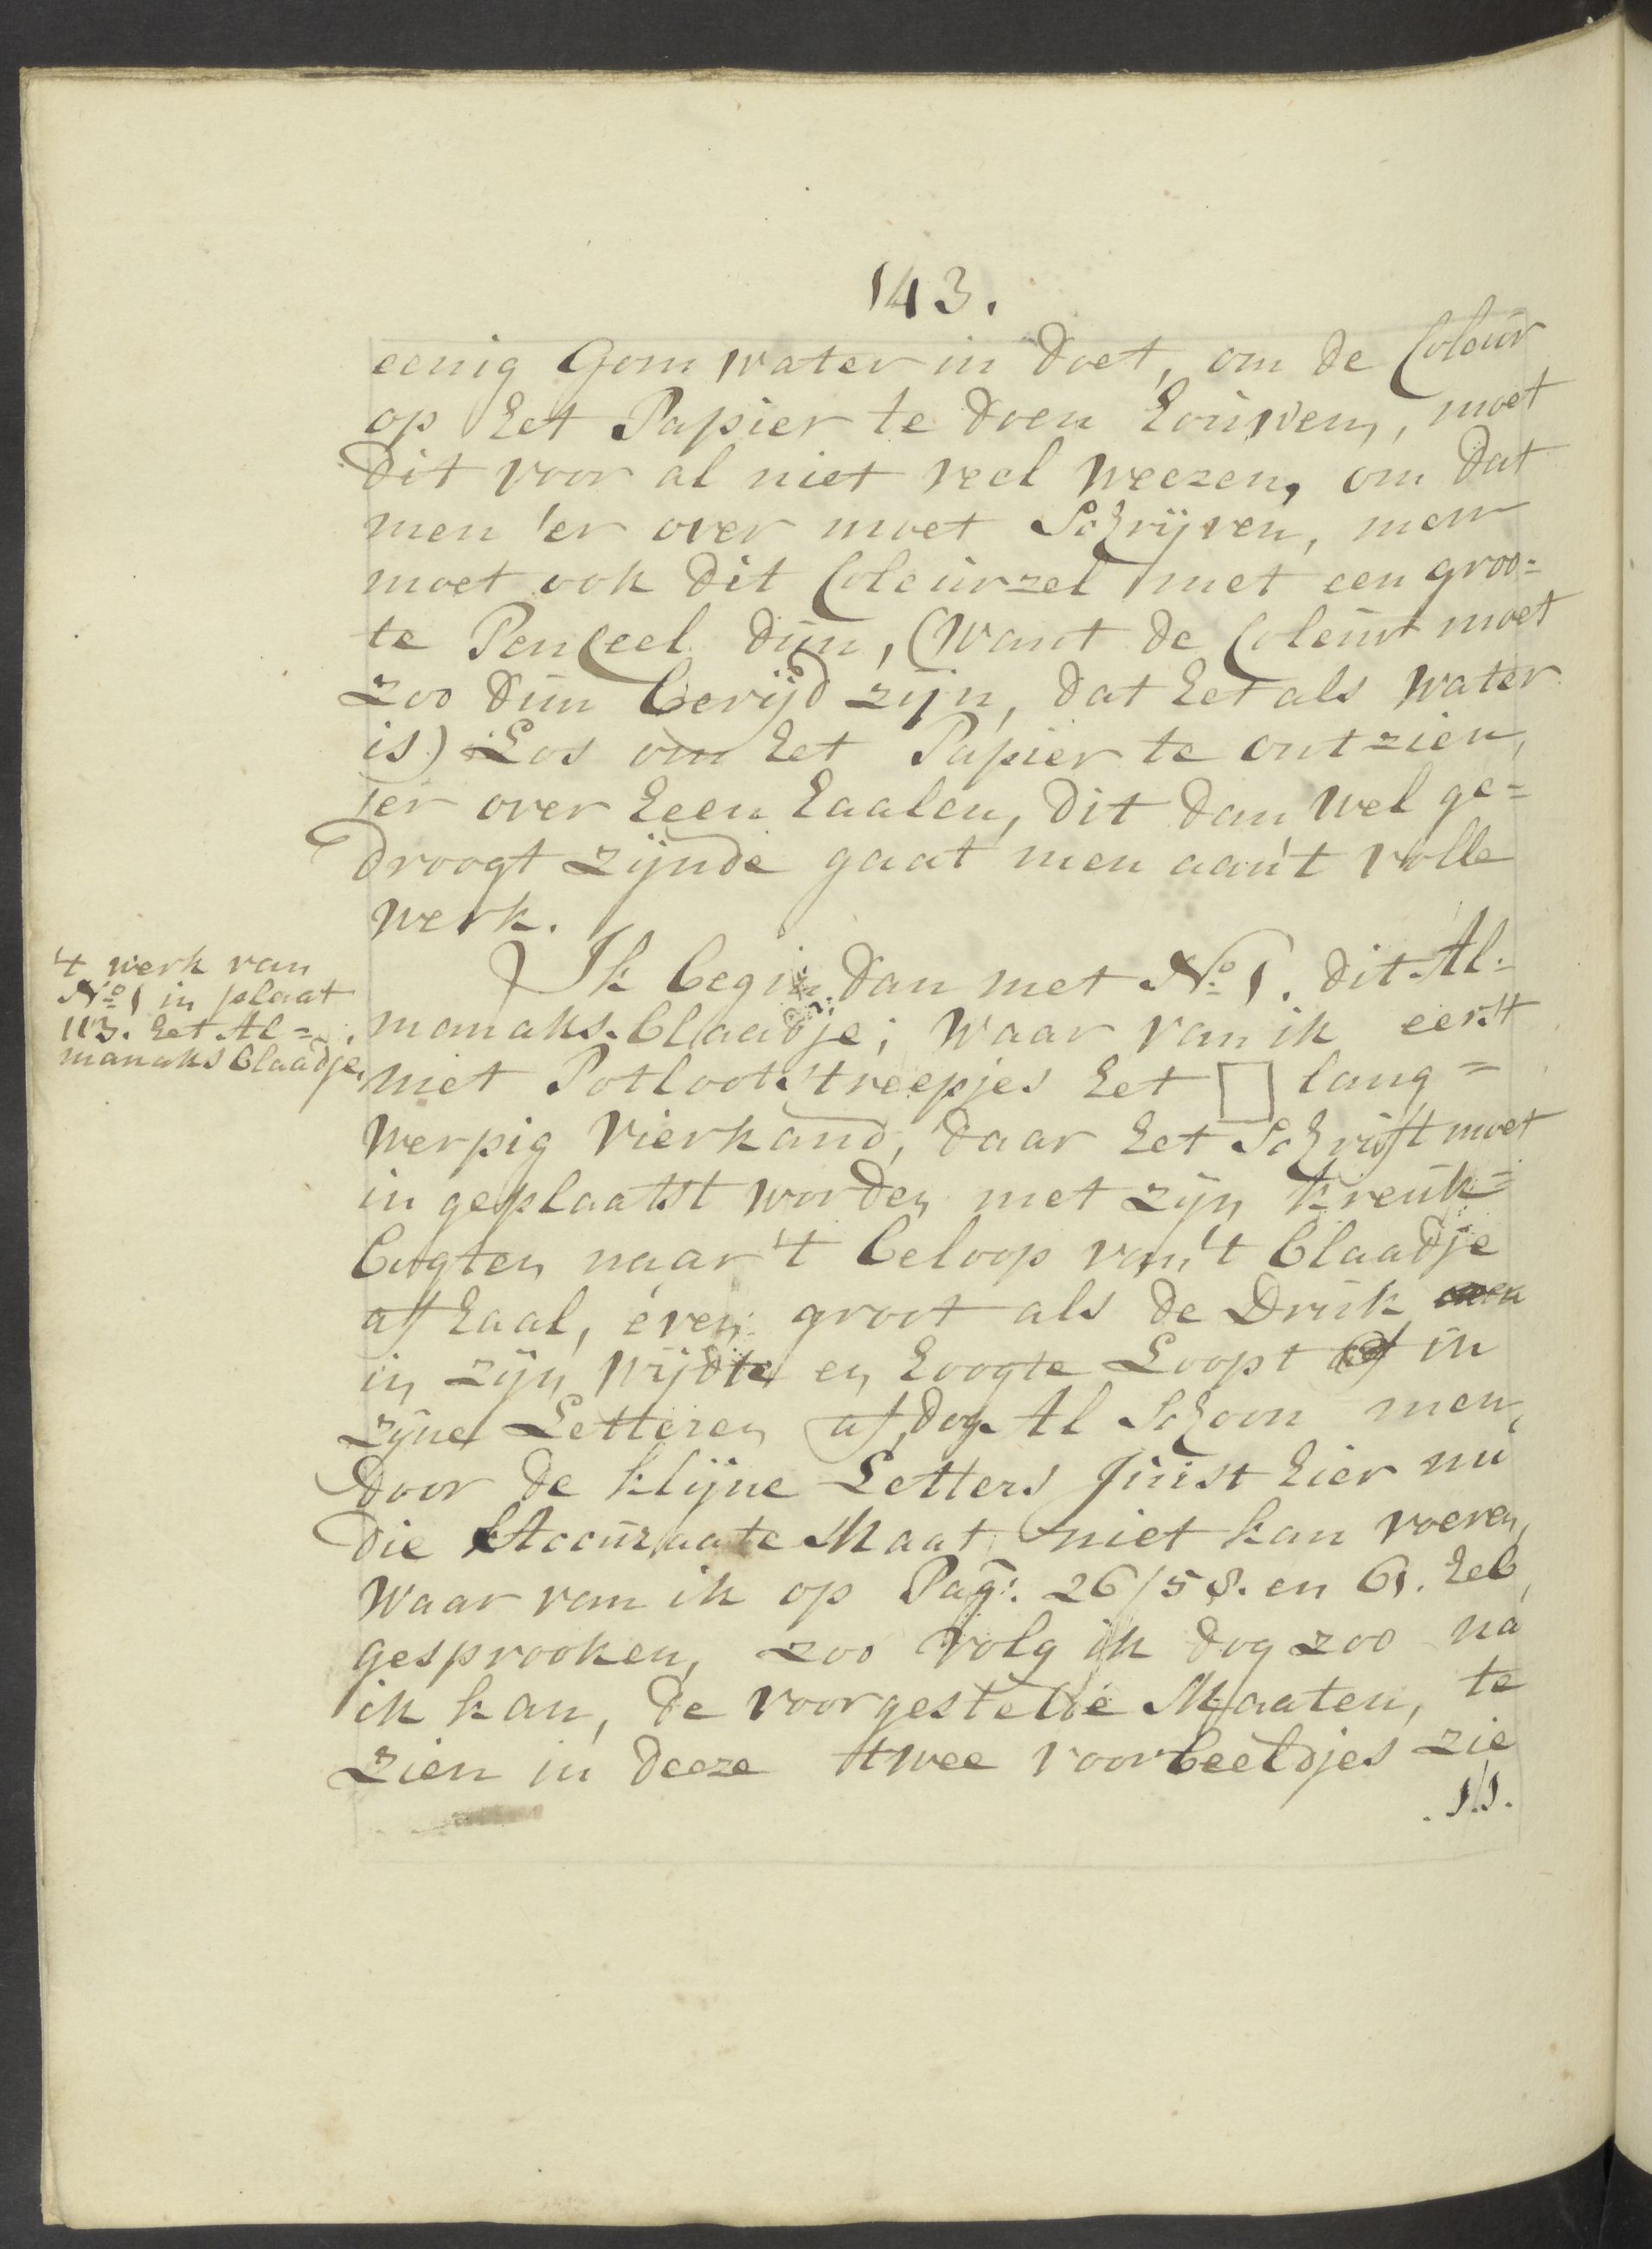 143.
eenig Gom water in doet, om de Coleur
op het Papier te doen houwen, moet
dit voor al niet veel weezen, om dat
men 'er over moet Schrijven, men
moet ook dit Coleurzel met een groo=
te Penceel dun, (want de Coleur moet
zoo dun berijd zijn, dat het als water
is) Los om het Papier te ontzien,
'er over heen haalen, dit dan wel ge=
droogt zijnde gaat men aan't volle
werk.
't werk van
No 1 in plaat
113. het Al=
manaks blaadje.
Ik begin dan met No 1. dit Al=
manaks blaadje; waar van ik eerst
met Potloot Streepjes het □ lang=
werpig vierkand, daar het Schrift moet
in geplaatst worden met zijn kreuk=
bugten naar 't beloop van 't blaadje
af haal, even groot als de Druk
in zijn wijdte en hoogte Loopt in
zijne Letteren af, dog Al Schoon men,
door de klijne Letters Juist hier nu
die Accuraate Maat niet kan voeren,
waar van ik op Pag: 26/58. en 61. heb
gesprooken, zoo volg ik dog zoo na
ik kan, de voorgestelde Maaten, te
zien in deeze twee voorbeeldjes zie